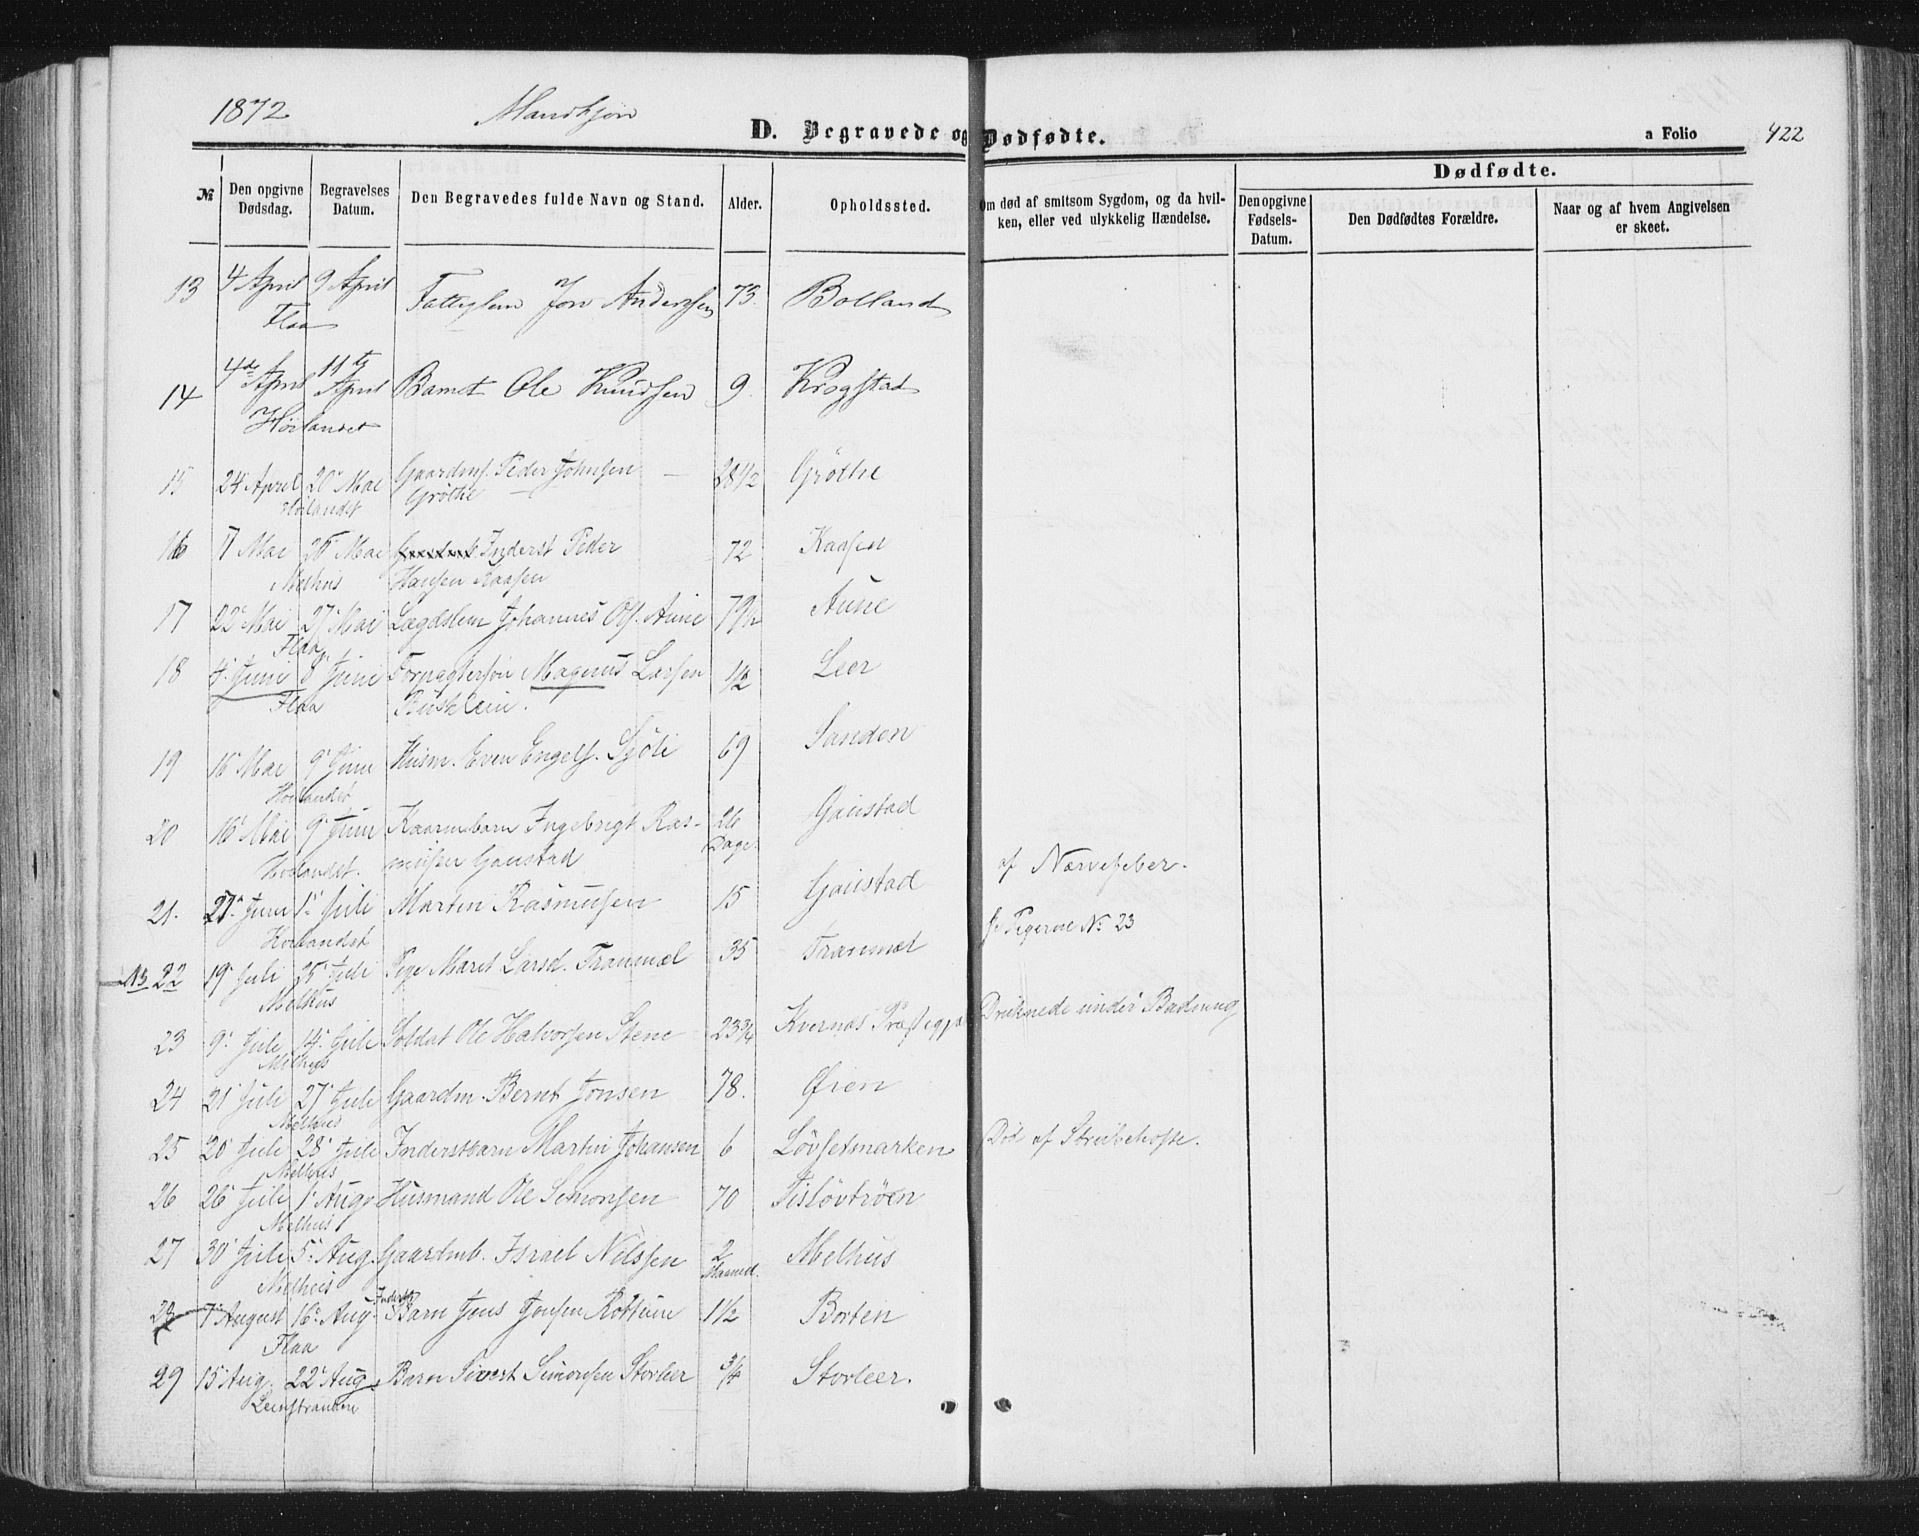 1872 Mandkjøn
D. Begravede og Dødfødte.
a Folio 422
№
Den opgivne Dødsdag.
Begravelses Datum.
Den Begravedes fulde Navn og Stand.
Alder.
Opholdssted.
Om død af smitsom Sygdom, og da hvilken, eller ved ulykkelig Hændelse.
Dødfødte.
Den opgivne Fødsels-Datum.
Den Dødfødtes Forældre.
Naar og af hvem Angivelsen er skeet.
13 4 April 9 April Fattiglem Jon Anderssen 73. Bolland
Flaa
14 4de April 11te April Barnet Ole Knudsen 9 Krogstad
Hörlandet
15 24 April 20 Mai Gaardms. Peder Johnsen 28 1/2 Gröthe
Höilandet Gröthe
16 7 Mai 26 Mai Inderst Peder 72 Kaasen
Melhus Hansen Kaasen
17 22 Mai 27 Mai Lægdslem Johannes Ols. Aune 79 1/2 Aune
Flaa
18 4 Juni 8 Juni Forpagtersön Magnus Larsen 1/2 Leer
Flaa Buseklein.
19 16 Mai 9 Juni Husm. Even Engels. Sjöli 69 Sanden
Hörlandet
20 16 Mai 9 Juni Kaarmbarn Ingebrigt Ras- 26 Dage. Gaustad
Hölandet. mussen Gaustad
21. 21 Juni 1 Juli Martin Rasmussen 15 Gaustad af Nærvefeber.
Hörlandet
NB 22 19 Juli 25 Juli Pige Marit Larsd. Tranmæl 35 Tranmæl fr Pigerne No. 23
Melhus
23 9 Juli 14 Juli Soldat Ole Halvorsen Stene 23 3/4 Kvernæs Præstegj Druknede under Badning
Melhus
24 21 Juli 27 Juli Gaardm. Bernt Jonsen 78. Øien
Melhus
25 20 Juli 28 Juli Inderstbarn Martin Johansen 6 Lövsetmarken Död af Strubehoste.
Melhus
26 26 Juli 1 Aug Husmand Ole Simonsen 70 Tislövtröen
Melhus
27 30 Juli 5 Aug. Gaardmb. Israel Nilssen 2 Maaned. Melhus
Melhus
28 7 August 16 Aug. Inderst Barn Jens Jonsen Rottum 1 1/2 Borten
Flaa
29 15 Aug. 22 Aug. Barn Sivert Simonsen Storleer 3/4 Storleer.
Leinstranden